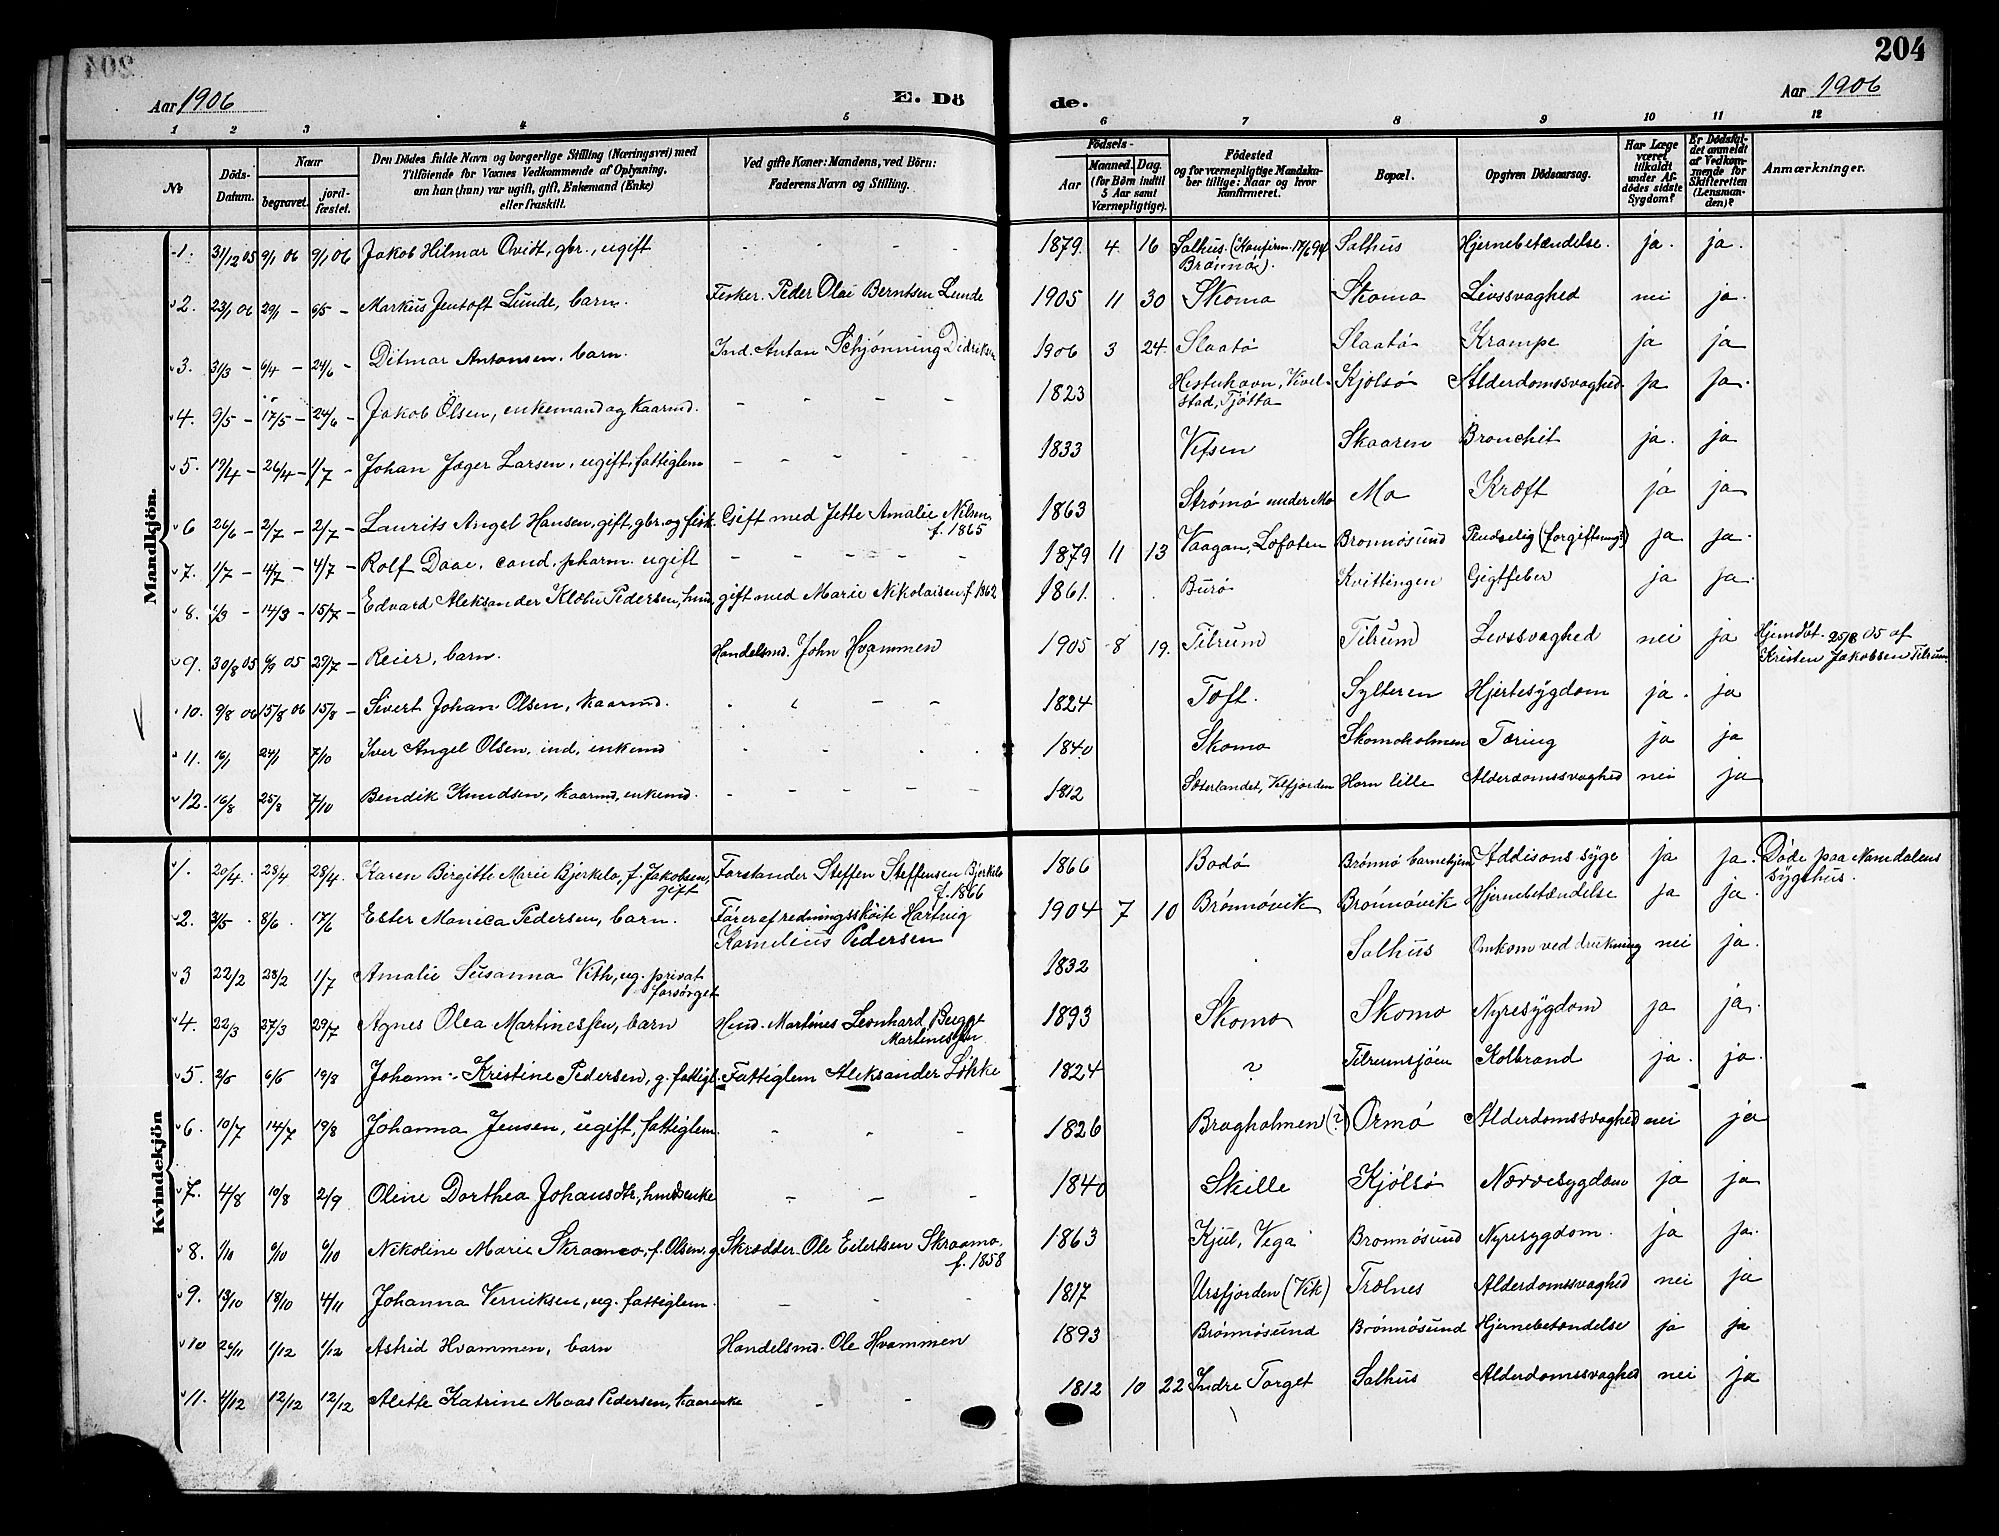 204
Aar 1906
E. Dö
de.
Aar 1906
1 2 3 4 5 6 7 8 9 10 11 12
No
Döds-Datum.
Naar
begravet.
jord-fæstet.
Den Dödes fulde Navn og borgerlige Stilling (Næringsvei) med
Tilföiende for Voxnes Vedkommende af Oplysning,
om hun (han) var ugift, gift, Enkemand (Enke)
eller fraskilt.
Ved gifte Koner: Mandens, ved Börn:
Faderens Navn og Stilling.
Födsels-
Aar
Maaned. Dag.
(for Börn indtil
5 Aar samt
Værnepligtige).
Födested
og for værnepligtige Mandska-
ber tillige: Naar og hvor
konfirmeret.
Bopæl.
Opgiven Dödsaarsag.
Har Læge
været
tilkaldt
under Af-
dödes sidste
Sygdom?
Er Dödsfal-
det anmeldt
af Vedkom-
mende for
Skifteretten
(Lensman-
den)?
Anmærkninger.
Mandkjön.
1. 31/12 05 9/1 06 9/1 06 Jakob Hilmar Qvidt, gbr., ugift - - - - 1879. 4 16 Salhus. (Konfirm. 17/6 94 Brønnø). Salhus Hjernebetændelse. ja. ja.
2. 23/1 06 29/1 - 6/5 - Markus Jentoft Lunde, barn. Fisker. Peder Olai Berntsen Lunde 1905 11 30 Skomo Skomo Livssvaghed nei ja.
3. 31/3 - 6/4 - 24/6 - Ditmar Antonsen, barn. Ind. Anton Schjønning Didriksen 1906 3 24. Slaatø Slaatø Krampe ja ja
4. 9/5 - 17/5 - 24/6 - Jakob Olsen, enkemand og kaarmd. - - - - 1823 Tjøtta Kjølsø Alderdomssvaghed. ja ja.
5. 19/4 - 26/4 - 1/7 - Johan Jæger Larsen, ugift, fattiglem - - - - 1833 Vefsen Skaaren Bronchit ja. ja
6 26/6 - 2/7 - 2/7 - Laurits Angel Hansen, gift, gbr. og fisk. Gift med Jette Amalie Nilsen f. 1865 1863 Strømø under Mo Mo Kræft ja ja
7. 1/7 - 4/7 - 4/7 - Rolf Daae, cand. pharm. ugift - - - - 1879 11 13 Vaagan, Lofoten Brønnøsund Pludselig (forgiftning?) ja ja.
8. 1/3 - 14/3 - 15/7 - Edvard Aleksander Klæbu Pedersen, hmd, gift med Marie Nikolaisen f. 1862 1861. Burø Kvittingen Gigtfeber ja ja.
9. 30/8 05 6/9 05 29/7 - Reier, barn. Handelsmd. John Hvammen 1905 8 19. Tilrum Tilrum Livssvaghed nei ja Hjemdbt. 25/8 05 af Kristen Jakobsen Tilrum.
10. 9/8 06 15/8 06 15/8 - Sivert Johan Olsen, kaarmd. 1824 Toft. Sylteren Hjertesygdom ja. ja
11. 16/1 24/1 7/10 Iver Angel Olsen, ind., enkemd 1840 Skomo Skomoholmen Tæring ja ja
12. 16/8 25/8 7/10 Bendik Knudsen, kaarmd, enkemd. - - - - 1812 Sæterlandet, Velfjorden Horn lille Alderdomssvaghed nei ja
Kvindekjön
1. 20/4. 28/4 28/4. Karen Birgitte Marie Bjerkelo, f. Jakobsen, gift Forstander Steffen Steffensen Bjerkelo f. 1866 1866 Bodø Brønnø barnehjem Addisons syge ja ja. Døde paa Namdalens sygehus.
2. 3/5. 8/6. 17/6 Ester Monica Pedersen, barn. Fører af redningsskøite Hartvig Kornelius Pedersen 1904 7 10 Brønnøvik Brønnøvik Hjernebetændelse ja ja.
3 22/2 28/2 1/7 Amalie Susanna Vith, ug. privat forsørget 1832 Salhus Omkom ved drukning nei ja.
4. 22/3 27/3 29/7 Agnes Olea Martinessen, barn Hmd. Martines Leonhard Bugge Martinessen 1893 Skomo Skomo Nyresygdom ja ja.
5. 2/6 6/6 19/8 Johann- Kristine Pedersen, g. fattigl. Fattiglem Aleksander Løkke 1824 ? Tilrumsjøen Kolbrand ja. ja.
6. 10/7 14/7 19/8 Johanna Jensen, ugift, fattiglem. 1826 Bragholmen (?) Ormø Alderdomssvaghed nei ja
7. 4/8 10/8 2/9 Oline Dorthea Johansdtr, hmdsenke - - - 1840 Skille Kjølsø Nervesygdom ja ja
8. 1/10 6/10 6/10 Nikoline Marie Skraamo, f. Olsen, g. Skrædder. Ole Eilertsen Skraamo. f. 1858 1863 Kjul, Vega Brønnøsund Nyresygdom. ja ja.
9. 13/10 18/10 4/11 Johanna Verriksen, ug. fattiglem. - - - 1817 Ursfjorden (Vik) Trælnes Alderdomssvaghed nei ja
10 26/11 1/12 1/12 Astrid Hvammen, barn Handelsmd. Ole Hvammen 1893 Brønnøsund Brønnøsund Hjernebetændelse ja ja
11. 4/12 12/12 12/12 Alette Katrine Maas Pedersen, kaarenke - - 1812 10 22 Indre Torget Salhus Alderdomssvaghed nei ja